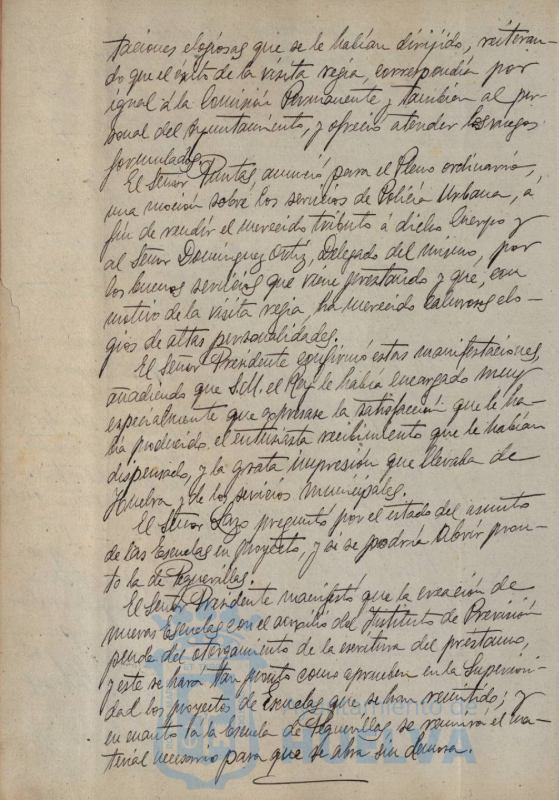 taciones elogiosas que se le habían dirijido, reiteran-
do que el éxito de la visita regia, correspondía por
igual á la Comisión Permanente y tambien al per-
sonal del Ayuntamiento, y ofreció atender los ruegos
formulados.
El Señor Puntas, anunció para el Pleno ordinario,
una moción sobre los servicios de Policía Urbana, a
fin de rendir el merecido tributo á dicho Cuerpo y
al Señor Dominguez Ortiz, Delegado del mismo, por
los buenos servicios que viene prestando y que, con
motivo de la visita regia, ha merecido calurosos elo-
gios de altas personalidades.
El Señor Presidente confirmó estas manifestaciones,
añadiendo que S.M. el Rey le había encargado muy
especialmente que expresase la satisfacción que le ha-
bia producido el entusiasta recibimiento que le habían
dispensado, y la grata impresión que llevaba de
Huelva y de los servicios municipales.
El Señor preguntó por el estado del asunto
de las Escuelas en proyecto, y si se podria abrir pron-
to la de Peguerillas.
El Señor Presidente manifestó que la creación de
nuevas Escuelas con el auxilio del Instituto de Previsión
pende del otorgamiento de la escritura del préstamo,
y este se hará tan pronto como aprueben en la Superiori-
dad los proyectos de Escuelas que se han remitido; y
en cuanto la Escuela de Peguerillas se reunira el ma-
terial necesario para que se abra sin demora.
Ayuntamiento de
HUELVA